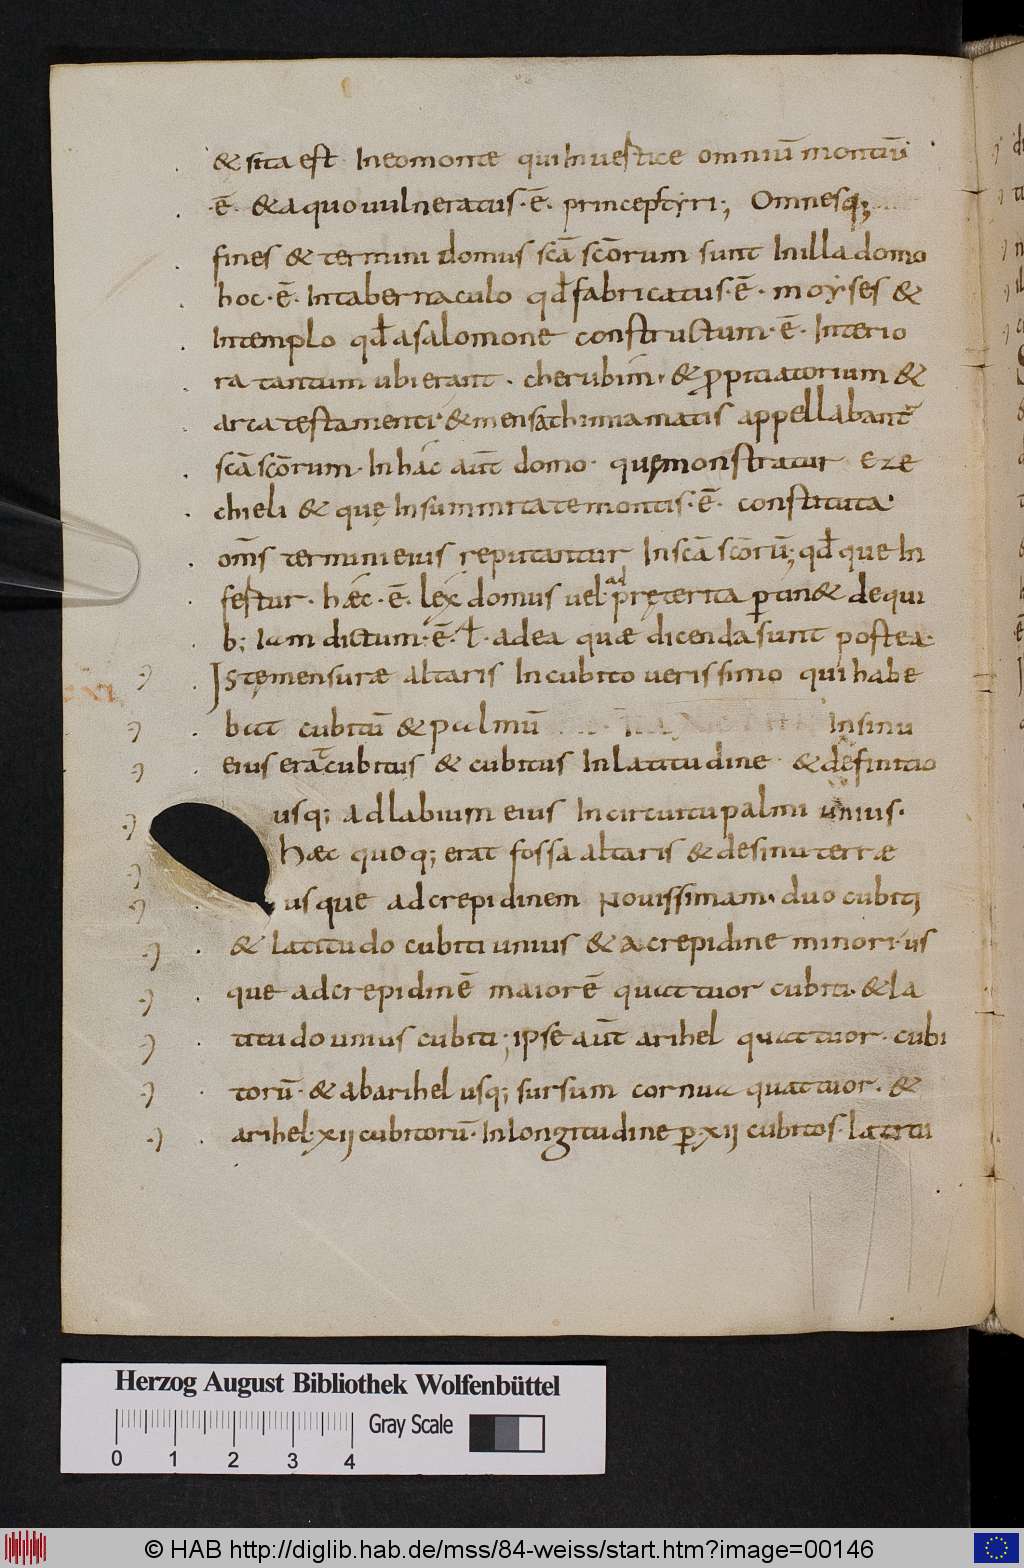 & sita est· In eo monte qui In uestice omniū montiū
·ē· & a quo uulneratus·ē· princeps tyri; Omnesq;
fines & termini domus scā scōrum sunt In illa domo
hoc·ē· In tabernaculo qđ fabricatus·ē· moyses &
In templo qđ a salomone constructum·ē· Interio
ra tantum ubi erant· cherubim· & ꝓpitiatorium &
arca testamenti· & mensa thimiamatis appellabant
scā scōrum· In hac aūt domo· quę monstratur eze
chieli & quę In summitate montis·ē· constituta·
om̄s termini eius reputantur In scā scōrū; qđ que In
fertur· hæc·ē· lex domus uel ad pręterita ꝑtin& de qui
b; iam dictum·ē· ł· ad ea quæ dicenda sunt postea·
Istę mensuræ altaris In cubito uerissimo qui habe
bat cubitū & palmū In sinu
eius erat cubitus & cubitus In latitudine· & definitio
usq; ad labium eius In circuitu palmi unius·
Hæc quoq; erat fossa altaris & de sinu terræ
usque ad crepidinem Nouissimam· duo cubiti
& latitudo cubiti unius & a crepidine minori us
que ad crepidinē maiorē quattuor cubiti· & la
titudo unius cubiti; ipse aūt arihel quattuor· cubi
torū· & ab arihel usq; sursum cornua quattuor· &
arihel·xij cubitorū· In longitudine ꝑ·xij cubitos· latitu
Herzog August Bibliothek Wolfenbüttel
Gray Scale
0 1 2 3 4
© HAB http://diglib.hab.de/mss/84-weiss/start.htm?image=00146